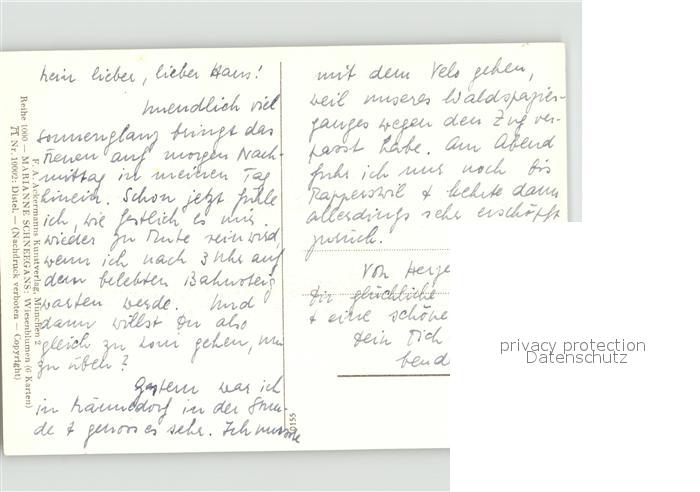 Mein lieber, lieber Hans!
Unendlich viel
Sonnenglanz bringt das
Freuen auf morgen Nach-
mittag in meinen Tag
hinein. Schon jetzt fühle
ich, wie festlich es mir
wieder zu Mute sein wird,
wenn ich nach 3 Uhr auf
dem belebten Bahnsteig
warten werde. Und
dann willst Du also
gleich zu uns gehen, um
zu üben?
Gestern war ich
in Männedorf in der Stun-
de & genoss es sehr. Ich musste
mit dem Velo gehen,
weil unseres Waldspazier-
ganges wegen den Zug ver-
passt habe. Am Abend
fuhr ich nur noch bis
Rapperswil & kehrte dann
allerdings sehr erschöpft
zurück.
Von Herze
Dir glückliche
& eine schöne
Dein Dich
bend
F. A. Ackermanns Kunstverlag, München 2
Reihe 1000 — MARIANNE SCHNEEGANS: Wiesenblumen (6 Karten)
Nr. 10002: Distel. — (Nachdruck verboten — Copyright)
privacy protection
Datenschutz